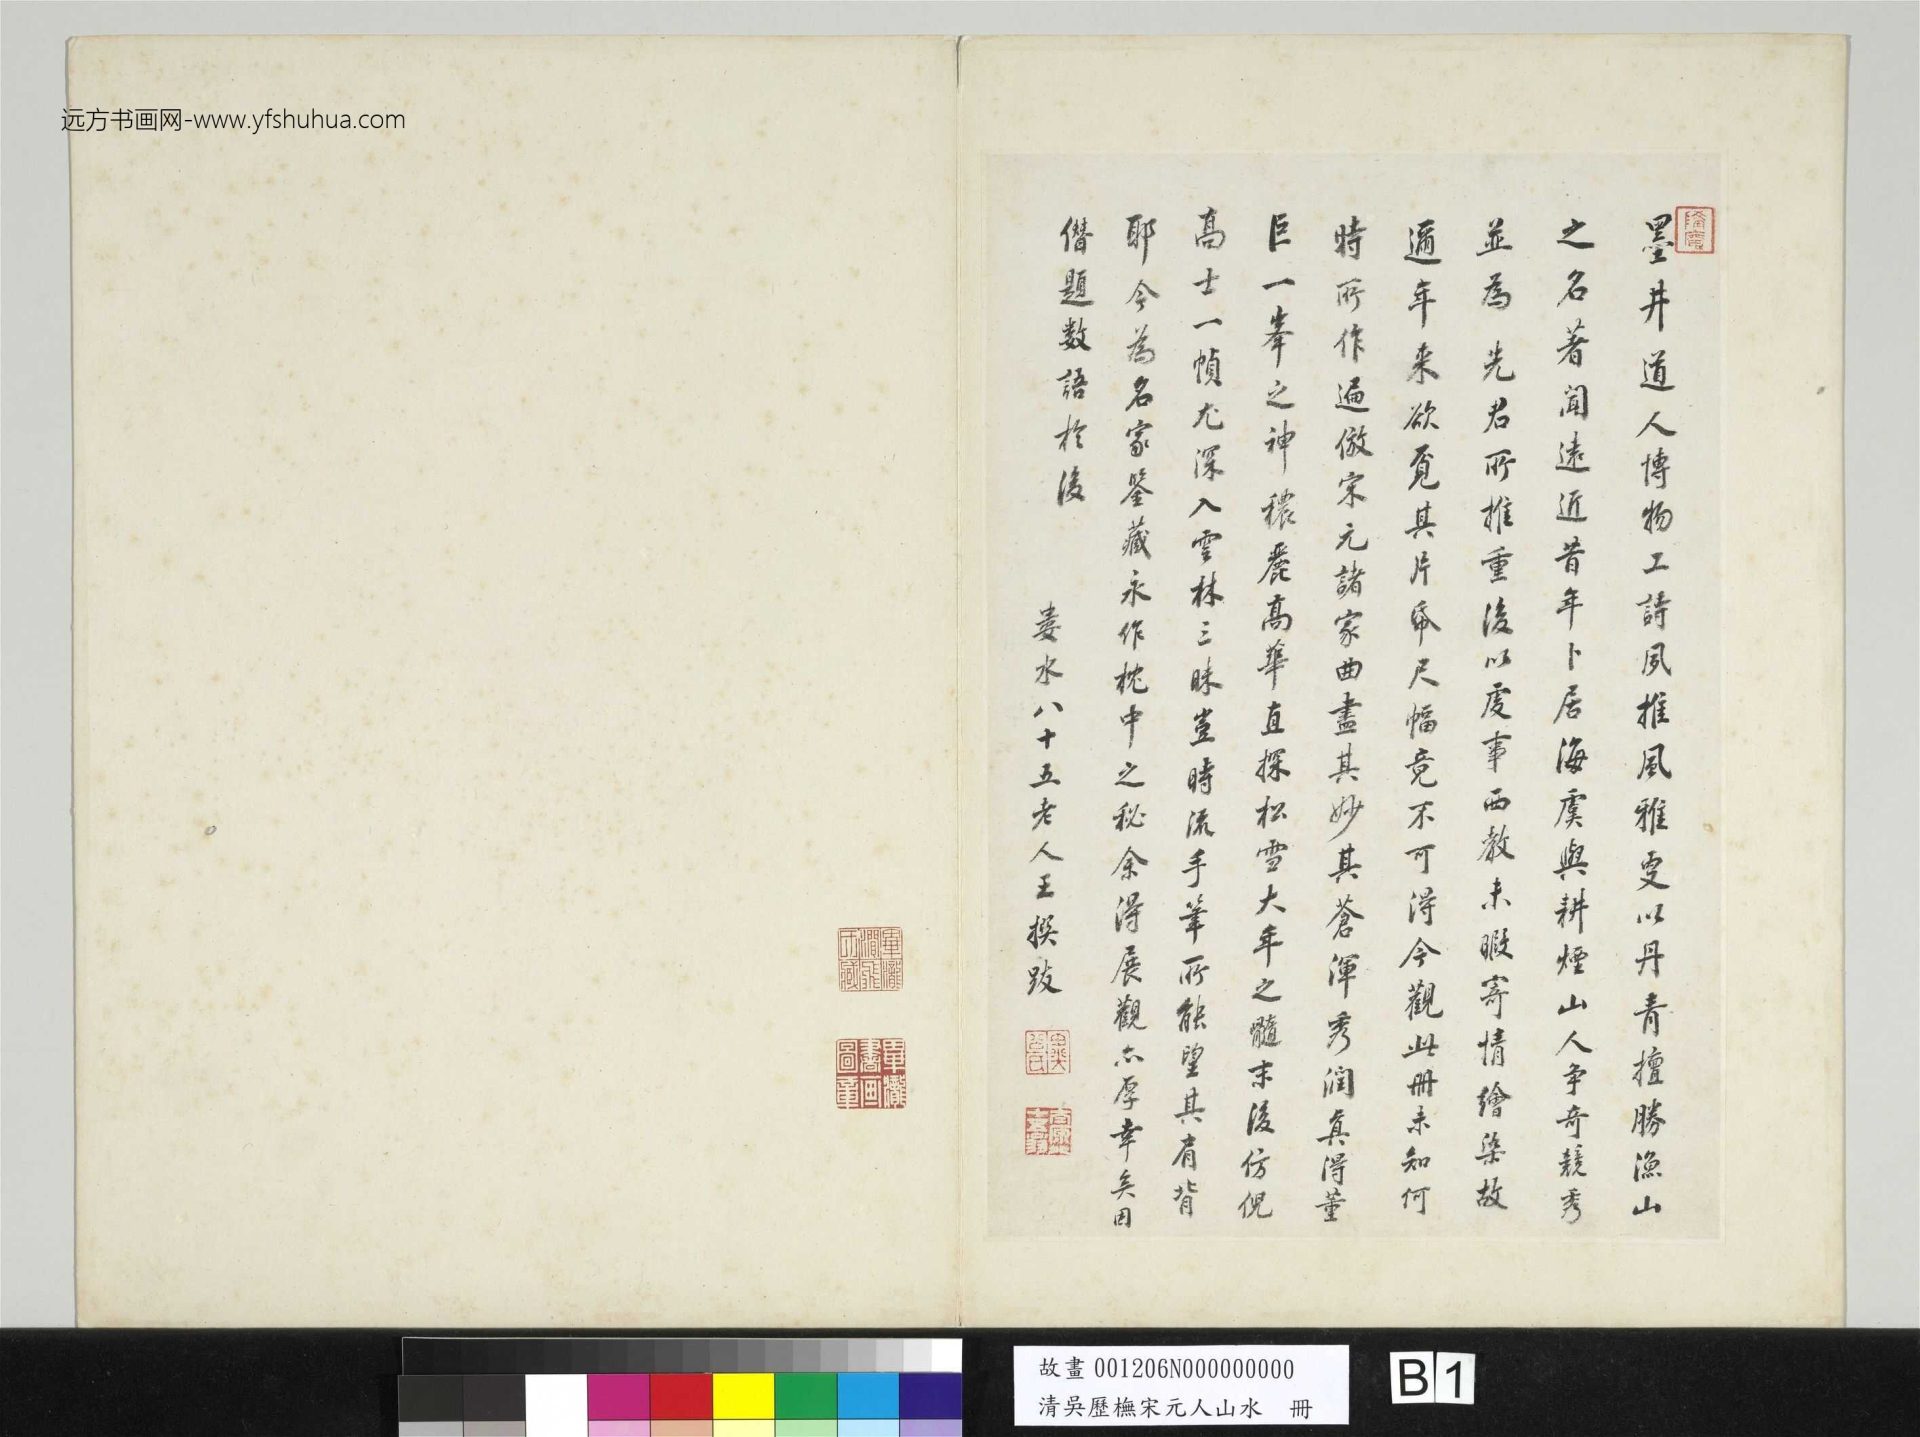 远方书画网-www.yfshuhua.com
墨井道人博物工詩夙推風雅更以丹青擅勝漁山
之名著聞遠近昔年卜居海虞與耕煙山人争奇競秀
並為先君所推重後以虔事西教未暇寄情繪染故
邇年来欲覓其片帋尺幅竟不可得今觀此册未知何
時所作遍倣宋元諸家曲盡其妙其蒼渾秀潤真得董
巨一峯之神穠麗高華直探松雪大年之髓末後仿倪
高士一幀尤深入雲林三昧豈時流手筆所能望其肩背
耶今為名家鑒藏永作枕中之秘余得展觀亦厚幸矣因
僭題数語於後
婁水八十五老人王撰跋
畢瀧澗飛氏藏
畢瀧書画圖章
故畫 001206N000000000
清吳歷橅宋元人山水 冊
B1